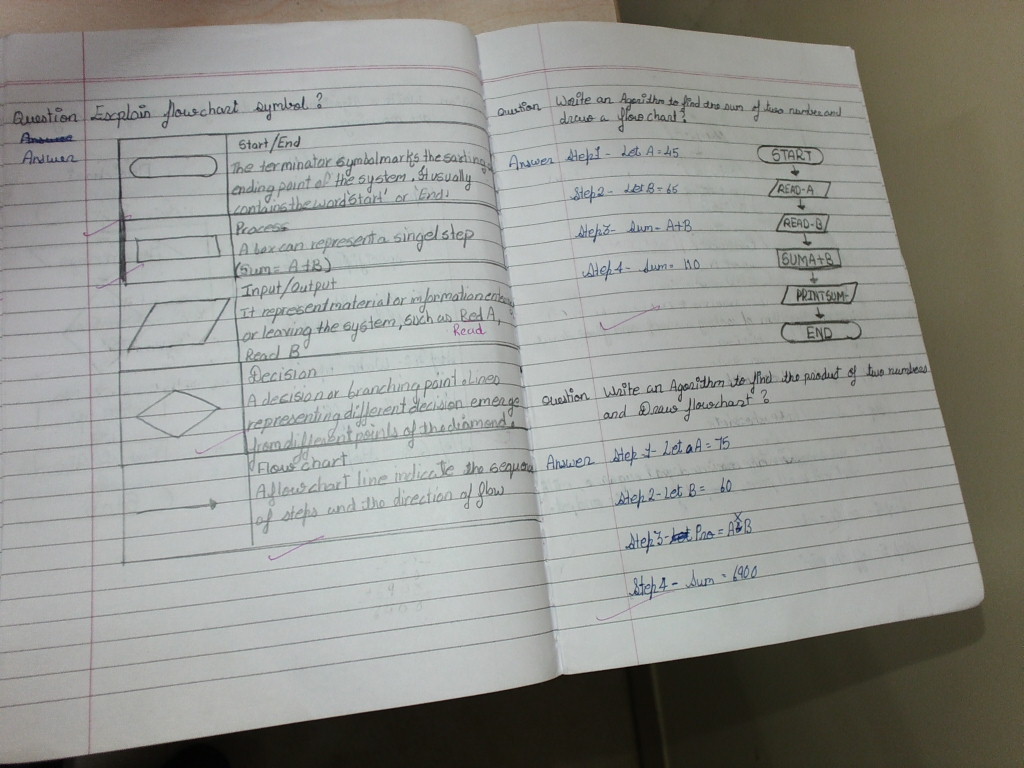 Question Explain flowchart symbol ?
Answer
Answer
Start/End
The terminator symbol marks the sarting
ending point of the system. It usually
contains the word 'start' or 'End'
Process
A box can represent a singel step
(Sum = A+B)
Input/Output
It represent material or information
or leaving the system, such as Red A,
Read
Read B
Decision
A decision or branching point. Lines
representing different decision emerge
from different points of the diamond.
Flow chart
A flow chart line indicate the
of steps and the direction of flow
Write an Agorithm to find the sum of two number and
draw a flow chart?
Answer Step 1 - Let A = 45
Step 2 - Let B = 65
Step 3 - Sum = A+B
Step 4 - Sum = 110
START
READ-A
READ-B
SUMA+B
PRINTSUM
END
Question Write an Agorithm to find the product of two numbers
and Draw flowchart ?
Answer Step 1 - Let A = 75
Step 2 - Let B = 60
Step 3 - Let Pro = A X B
Step 4 - Sum = 6900